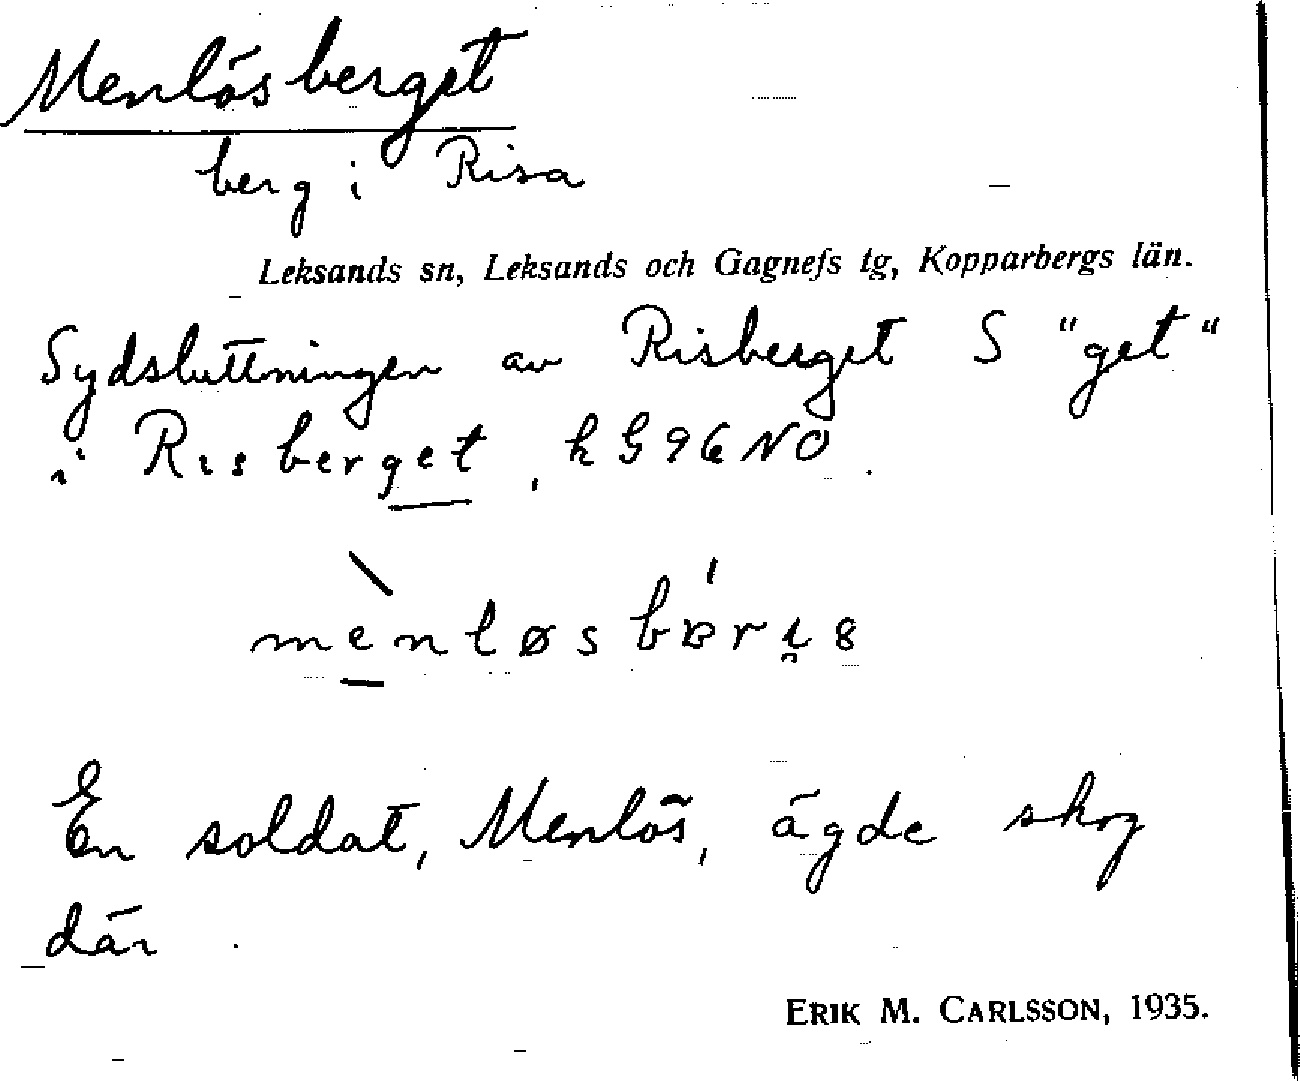 Menlösberget
berg i Risa
Leksands sn, Leksands och Gagnefs tg, Kopparbergs län.
Sydsluttningen av Risberget S "get"
i Risberget, kG96NO.
En soldat, Menlös, ägde skog
där.
ERIK M. CARLSSON, 1935.